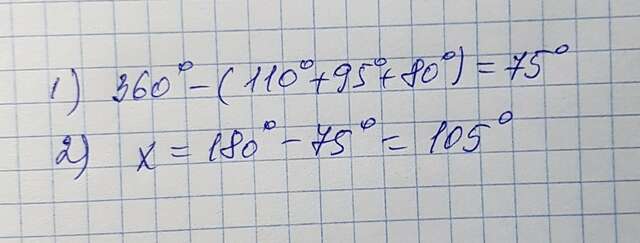 1) 360° - (110° + 95° + 80°) = 75°
2) x = 180° - 75° = 105°